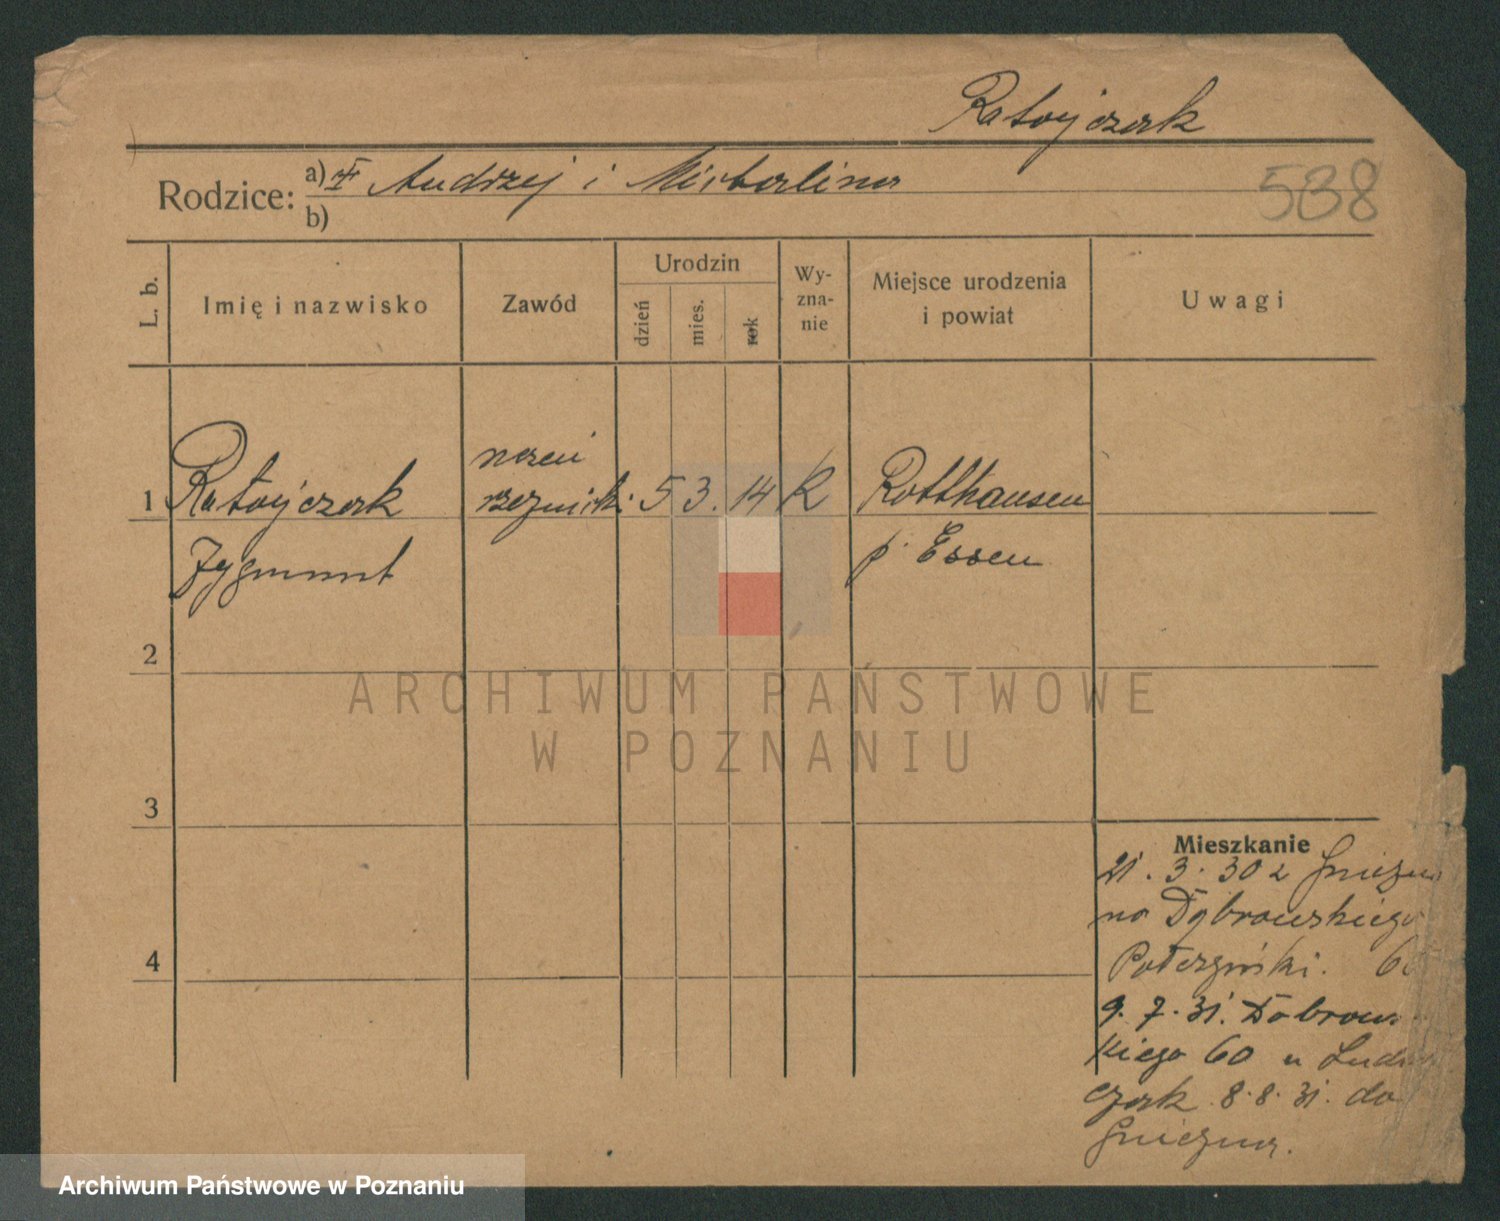 Ratajczak
Rodzice: a) Andrzej i Michalina
b)
538
L. b.
Imię i nazwisko
Zawód
Urodzin
dzień
mies.
rok
Wy-
zna-
nie
Miejsce urodzenia
i powiat
Uwagi
1 Ratajczak uczeń rzeźnicki 5 3. 14 k Rotthausen
Zygmunt p. Essen
2
3
4
ARCHIWUM PAŃSTWOWE
W POZNANIU
Mieszkanie
21. 3. 30 z
na Dąbrowskiego
9. 7. 31. Dąbrow-
skiego 60 u
czak 8. 8. 31. do
Gniezna.
Archiwum Państwowe w Poznaniu